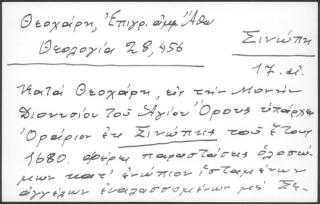 Θεοχάρη, Ἐπιγρ. ἀμφ. Ἄθω
Θεολογία 28, 456
Σινώπη
17. αἰ.
Κατά Θεοχάρη, εἰς τήν Μονήν
Διονυσίου τοῦ Ἁγίου Ὄρους ὑπάρχει
Ὀράριον ἐκ Σινώπης τοῦ ἔτους
1680. φέρει παραστάσεις ὁλοσώ-
μων κατ' ἐνώπιον ἱσταμένων
ἀγγέλων ἐναλασσομένων μέ Σε-